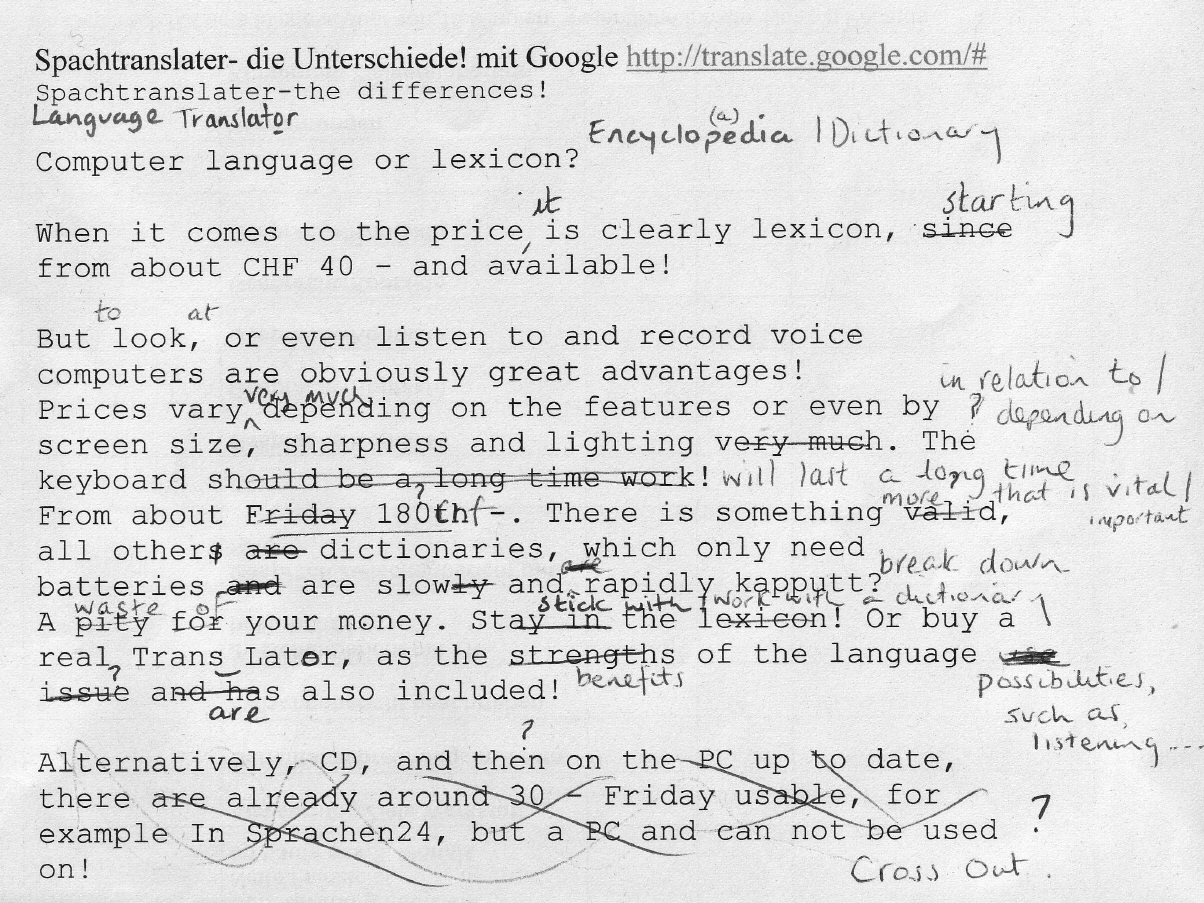 Spachtranslater- die Unterschiede! mit Google http://translate.google.com/#
Spachtranslater-the differences!
Language Translator
(a)
Encyclopedia / Dictionary
Computer language or lexicon?
it
starting
When it comes to the price, is clearly lexicon, since
from about CHF 40 - and available!
to at
But look, or even listen to and record voice
computers are obviously great advantages!
in relation to /
very much
Prices vary depending on the features or even by ? depending on
screen size, sharpness and lighting very much. The
keyboard should be a long time work! will last a long time
? more that is vital /
From about Friday 180Chf-. There is something valid, important
all others are dictionaries, which only need
are break down
batteries and are slowly and rapidly kapputt?
waste of stick with / work with a dictionary
A pity for your money. Stay in the lexicon! Or buy a
real Trans Lator, as the strengths of the language
? benefits possibilities,
issue and has also included!
are such as,
? listening ....
Alternatively, CD, and then on the PC up to date,
there are already around 30 - Friday usable, for
example In Sprachen24, but a PC and can not be used ?
on!
Cross Out.